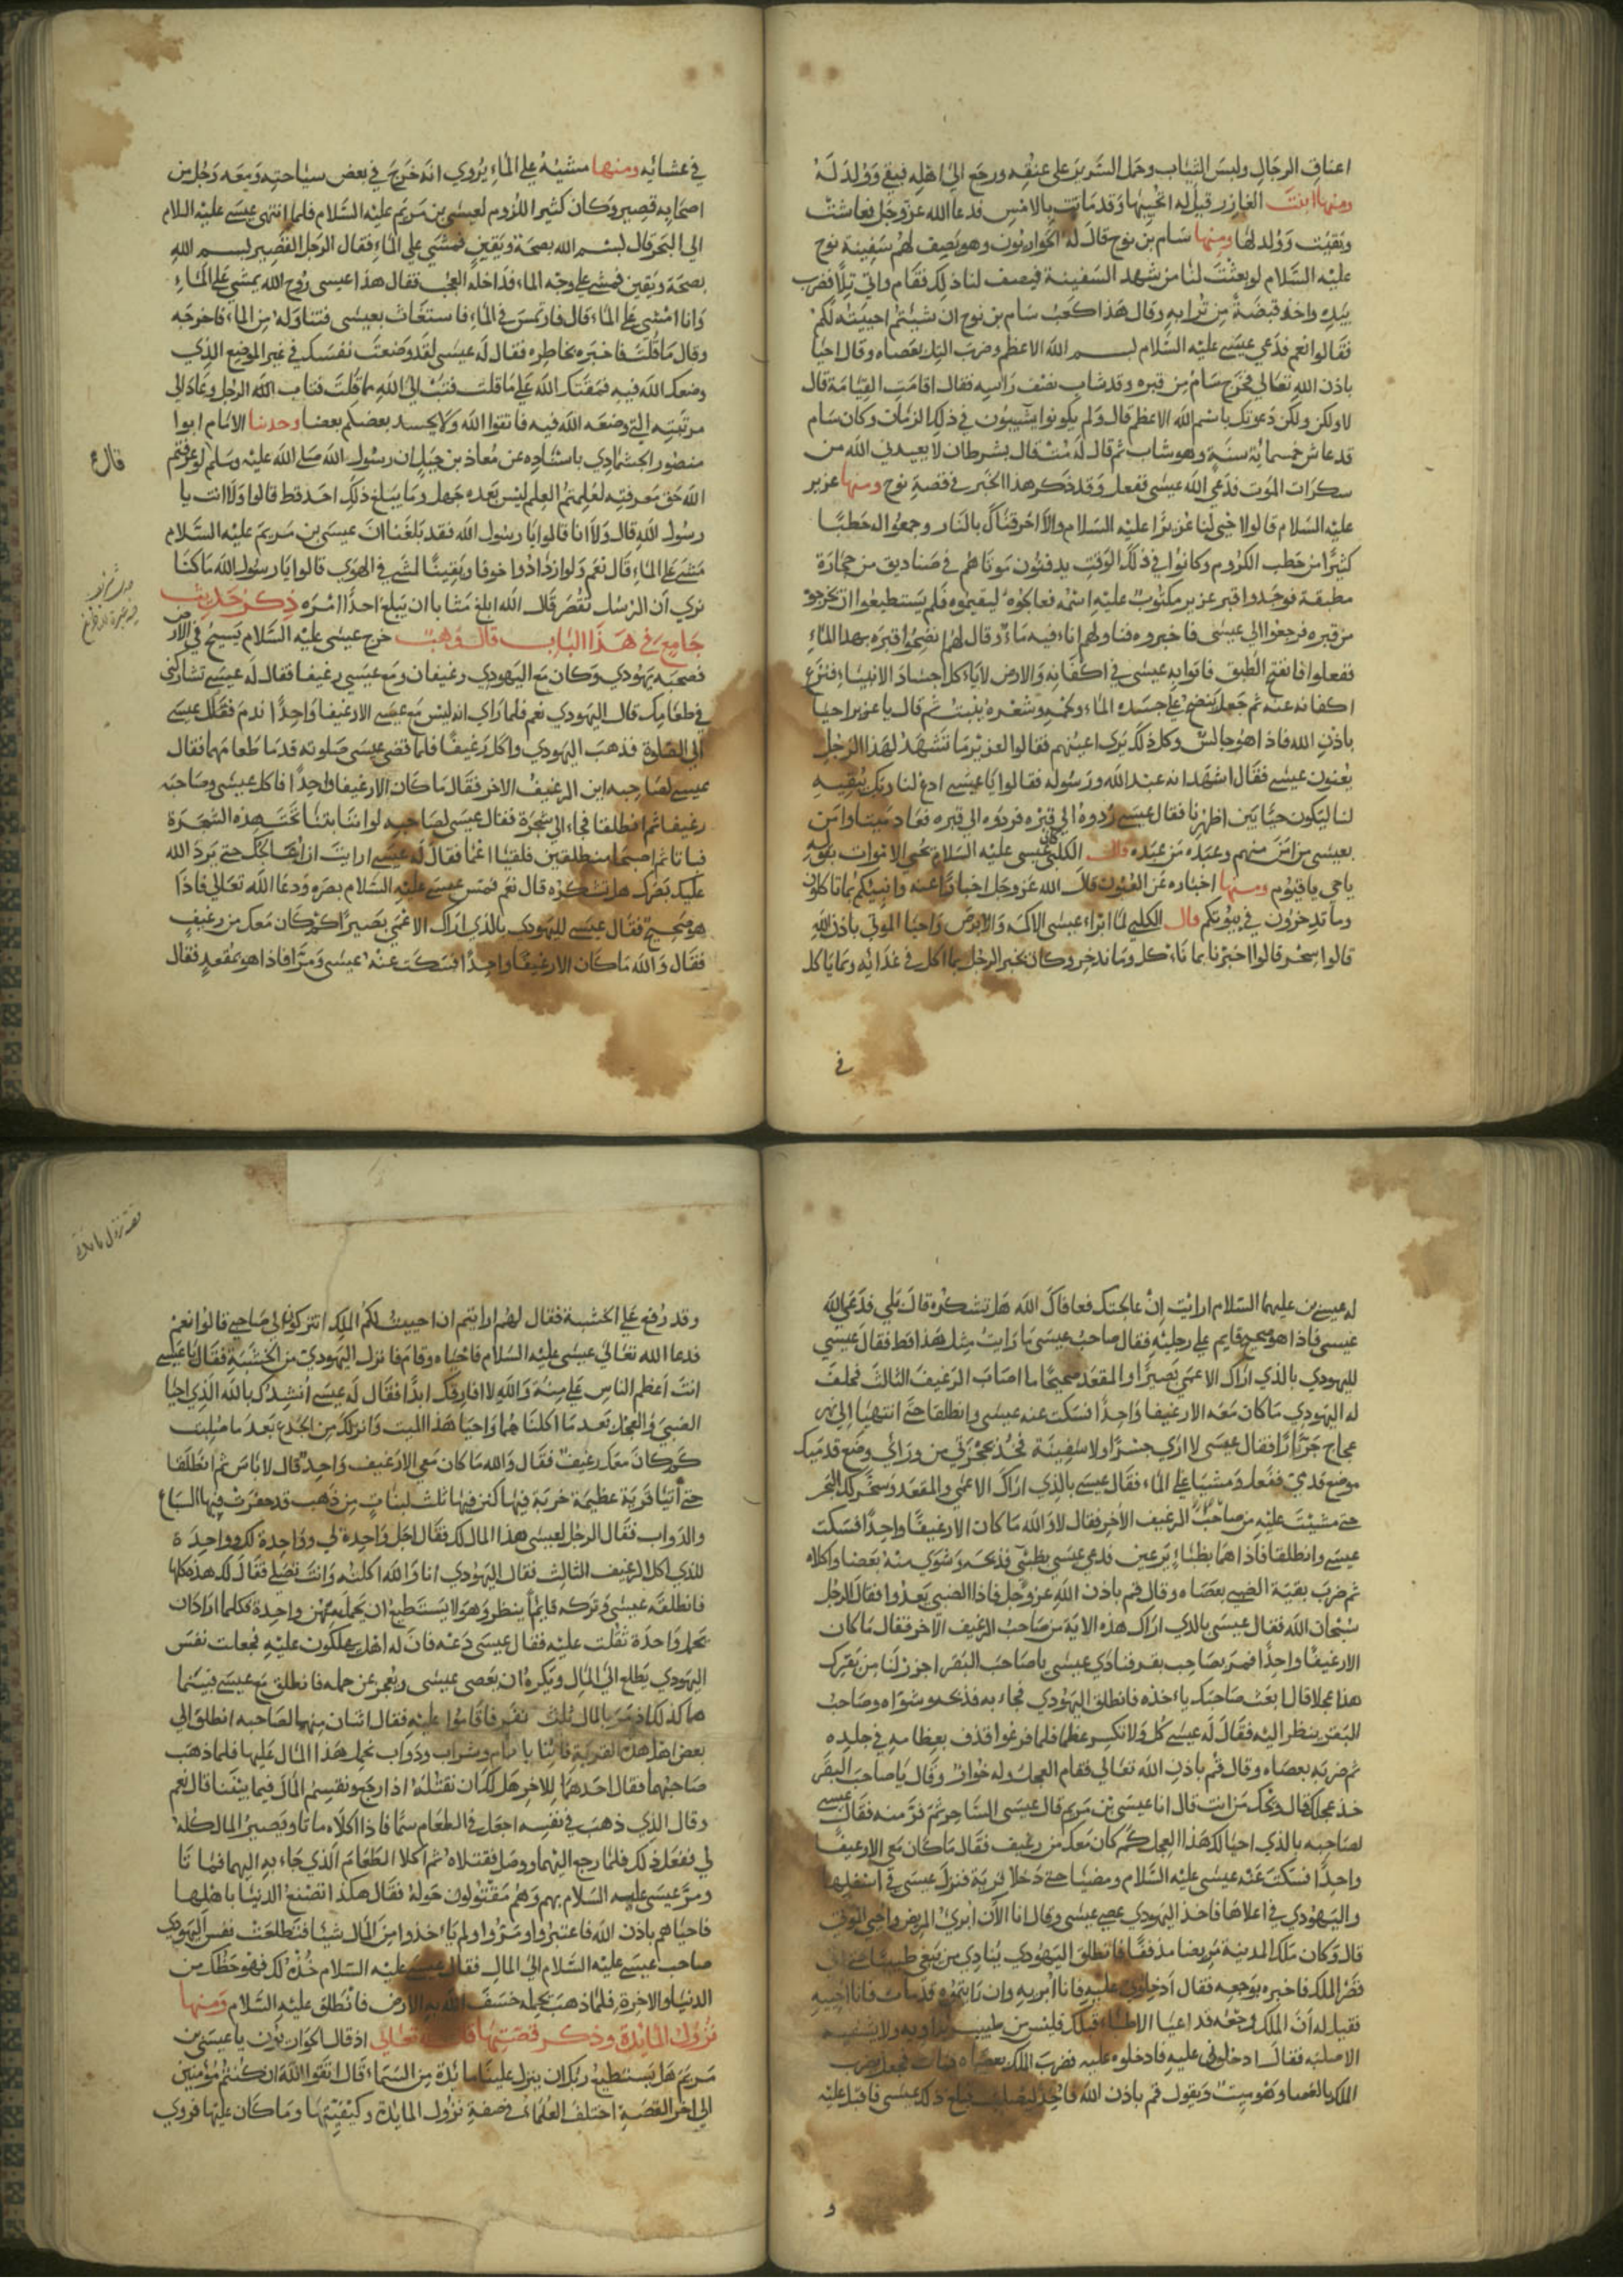 اعناق الرجال ولبس الثياب وحمل السرير على عنقه ورجع الى اهله فبقي وولد له
ومنها ابنت العازر قيل له احيها وقد ماتت بالامس فدعا الله عز وجل فعاشت
وبقيت وولد لها ومنها سام بن نوح قال له الحواريون وهو يصف لهم سفينة نوح
عليه السلام لو بعثت لنا من شهد السفينة فيصف لنا ذلك فقام واتي تلا فضرب
بيده واخذ قبضة من ترابه وقال هذا كعب سام بن نوح ان شيتم احييته لكم
فقالوا نعم فدعي عيسى عليه السلام بسم الله الاعظم وضرب التل بعصاه وقال احيا
باذن الله تعالي فخرج سام من قبره وقد شاب نصف راسه فقال اقامت القيامة قال
لا ولكن دعوتك باسم الله الاعظم قال ولم يكونوا يشيبون في ذلك الزمان وكان سام
قد عاش خمسماية سنة وهو شاب ثم قال له مت قال بشرط ان لا يعيدني الله من
سكرات الموت فدعي الله عيسى ففعل وقد ذكر هذا الخبر في قصة نوح ومنها عزير
عليه السلام قالوا احيي لنا عزيرا عليه السلام والا احرقناك بالنار وجمعوا له حطبا
كثيرا من حطب الكروم وكانوا في ذلك الوقت يدفنون موتاهم في صناديق من حجارة
مطبقة فوجدوا قبر عزير مكتوب عليه اسمه فعالجوه ليفتحوه فلم يستطيعوا ان يخرجوه
من قبره فرجعوا الي عيسى فاخبروه فناولهم اناء فيه ماء وقال لهم انضحوا قبره بهذا الماء
ففعلوا فانفتح الطبق فاتوا به عيسى في اكفانه والارض لا ياكل اجساد الانبياء فنزع
اكفانه عنه ثم جعل ينضح علي جسده الماء ولحمه وشعره ينبت ثم قال يا عزير احيا
باذن الله فاذا هو جالس وكل ذلك يري اعينهم فقالوا لعزير ما تشهد لهذا الرجل
يعنون عيسى فقال اشهد انه عبد الله ورسوله فقالوا يا عيسى ادع لنا ربك يبقيه
لنا ليكون حيا بين اظهرنا فقال عيسى ردوه الي قبره فردوه الي قبره فعاد ميتا وامن
بعيسى من امن منهم وعبده من عبده قال الكلبي كان عيسى عليه السلام يحيي الاموات بقوله
يا حي يا قيوم ومنها اخباره عن الغيوب قال الله عز وجل اخبارا عنه وانبيكم بما تاكلون
وما تدخرون في بيوتكم قال الكلبي لما ابراء عيسى الاكمه والابرص واحيا الموتي باذن الله
قالوا سحر قالوا اخبرنا بما ناكل وما ندخر وكان يخبر الرجل بما اكل في غذائه وبما ياكل
في
في عشائه ومنها مشيه علي الماء يروي انه خرج في بعض سياحته ومعه رجل من
اصحابه قصير وكان كثير اللزوم لعيسى بن مريم عليه السلام فلما انتهى عيسى عليه السلام
الي البحر قال بسم الله بصحة ويقين فمشي علي الماء فقال الرجل القصير بسم الله
بصحة ويقين فمشي علي وجه الماء فداخله العجب فقال هذا عيسى روح الله يمشي علي الماء
وانا امشي علي الماء قال فارتمس في الماء فاستغاث بعيسى فتناوله من الماء فاخرجه
وقال ما قلت فاخبره بخاطره فقال له عيسى لقد وضعت نفسك في غير الموضع الذي
وضعك الله فيه فمقتك الله علي ما قلت فتب الي الله مما قلت فتاب الله الرجل وعاد الي
مرتبته التي وضعه الله فيه فاتقوا الله ولا يحسد بعضكم بعضا وحدثنا الامام ابوا
منصور الجمشادي باسناده عن معاذ بن جبل ان رسول الله صلي الله عليه وسلم لو عرفتم
قال
الله حق معرفته لعلمتم العلم ليس بعده جهل وما يبلغ ذلك احد قط قالوا ولا انت يا
رسول الله قال ولا انا قالوا يا رسول الله فقد بلغنا ان عيسى بن مريم عليه السلام
مشي علي الماء قال نعم ولو ازداد خوفا ويقينا لمشي في الهوي قالوا يا رسول الله ما كنا
نري ان الرسل تقصر قال الله ابلغ شانا ان يبلغ احدا امره ذكر حديث
جامع في هذا الباب قال وهب خرج عيسى عليه السلام يسيح في الارض
فصحبه يهودي وكان مع اليهودي رغيفان ومع عيسى رغيفا فقال له عيسى تشاركني
في طعامك قال اليهودي نعم فلما راي انه ليس مع عيسى الا رغيفا واحدا ندم فقال عيسى
الي الصلوة فذهب اليهودي واكل رغيفا فلما قضي عيسى صلوته قدما طعامهما فقال
عيسى لصاحبه اين الرغيف الاخر فقال ما كان الا رغيفا واحدا فاكل عيسى وصاحبه
رغيفا ثم انطلقا فجاء الي شجرة فقال عيسى لصاحبه لو اننا بتنا تحت هذه الشجرة
فباتا ثم اصبحا منطلقين فلقيا اعمى فقال له عيسى ارايت ان عالجتك حتي يرد الله
عليك بصرك هل تشكره قال نعم فمس عيسى عليه السلام بصره ودعا الله تعالي فاذا
هو صحيح فقال عيسى لليهودي بالذي اراك الاعمي بصيرا كم كان معك من رغيف
فقال والله ما كان الا رغيفا واحدا فسكت عنه عيسى ومرا فاذا هو بمقعد فقال
له عيسى بن عليهما السلام ارايت ان عالجتك فعافاك الله هل تشكره قال بلي فدعي الله
عيسى فاذا هو صحيح قايم علي رجليه فقال صاحب عيسى ما رايت مثل هذا قط فقال عيسى
لليهودي بالذي اراك الاعمى بصيرا والمقعد صحيحا ما اصاب الرغيف الثالث فحلف
له اليهودي ما كان معه الا رغيفا واحدا فسكت عنه عيسى وانطلقا حتي انتهيا الي نهر
عجاج جرار فقال عيسى لا اري جسرا ولا سفينة فخذ بحجزتي من وراي وضع قدميك
موضع قدمي ففعل ومشيا علي الماء فقال عيسى بالذي اراك الاعمى والمقعد وسخر لك البحر
حتي مشيت عليه من صاحب الرغيف الاخر فقال لا والله ما كان الا رغيفا واحدا فسكت
عيسى وانطلقا فاذا هما بظباء يرعين فدعي عيسى بظبي فذبحه وشوي منه بعضا واكلاه
ثم ضرب بقية الضبي بعصاه وقال قم باذن الله عز وجل فاذا الضبي يعدوا فقال الرجل
سبحان الله فقال عيسى بالذي اراك هذه الاية من صاحب الرغيف الاخر فقال ما كان
الا رغيفا واحدا فمر بصاحب بقر فنادي عيسى يا صاحب البقر اجزر لنا من بقرك
هذا عجلا قال ابعث صاحبك ياخذه فانطلق اليهودي فجاء به فذبحه وشواه وصاحب
البقر ينظر اليه فقال له عيسى كل ولا تكسر عظما فلما فرغوا قذف بعظامه في جلده
ثم ضربه بعصاه وقال قم باذن الله تعالي فقام العجل وله خوار وقال يا صاحب البقر
خذ عجلك قال ويحك من انت قال انا عيسى بن مريم قال عيسى الساحر ثم فر منه فقال عيسى
لصاحبه بالذي احيا لك هذا العجل كم كان معك من رغيف فقال ما كان مع الا رغيفا
واحدا فسكت عنه عيسى عليه السلام ومضيا حتي دخلا قرية فنزل عيسى في اسفلها
واليهودي في اعلاها فاخذ اليهودي عصي عيسى وقال انا الان ابري المريض واحيي الموتي
قال وكان ملك المدينة مريضا مدنفا فانطلق اليهودي ينادي من يبغي طبيبا حتي اتي
قصر الملك فاخبره بوجعه فقال ادخلوني عليه فانا ابريه وان رايتموه قد مات فانا احييه
فقيل له ان الملك وجعه قد اعيا الاطباء قبلك فليس من طبيب يداويه ولا يشفيه
الا صلبه فقال ادخلوني عليه فادخلوه عليه فضرب الملك بعصاه فمات فجعل يضرب
الملك بالعصا وهو ميت ويقول قم باذن الله فاخذ ليصلب فبلغ ذلك عيسى فاقبل عليه
و
قصه نزول مايده
وقد رفع علي الخشبة فقال لهم ارايتم ان احييت لكم الملك اتتركون لي صاحبي قالوا نعم
فدعا الله تعالى عيسى عليه السلام فاحياه وقام فانزل اليهودي من الخشبة فقال يا عيسى
انت اعظم الناس علي منة والله لا افارقك ابدا فقال له عيسى انشدك بالله الذي احيا
الضبي والعجل بعد ما اكلناهما واحيا هذا الميت وانزلك من الجذع بعد ما صلبت
كم كان معك رغيف فقال والله ما كان معي الا رغيف واحد قال لا باس ثم انطلقا
حتي اتيا قرية عظيمة خربة فيها كنز فيها ثلث لبنات من ذهب قد حفرت فيها السباع
والدواب فقال الرجل لعيسى هذا المال لك فقال اجل واحدة لي وواحدة لك وواحدة
للذي اكل الرغيف الثالث فقال اليهودي انا والله اكلته وانت تصلي فقال لك هذه كلها
فانطلق عيسى وتركه قايما ينظر وهو لا يستطيع ان يحمله منهن واحدة فكلما اراد ان
يحمل واحدة ثقلت عليه فقال عيسى دعه فان له اهل يهلكون عليه فجعلت نفس
اليهودي يطلع الي المال ويكره ان يعصي عيسى ويعجز عن حمله فانطلق مع عيسى فبينما
هما كذلك اذ مر بالمال ثلث نفر فاقاموا عليه فقال اثنان منهم لصاحبه انطلق الي
بعض اهل هذه القرية فاتنا بطعام وشراب ودواب نحمل هذا المال عليها فلما ذهب
صاحبهما فقال احدهما للاخر هل لك ان نقتله اذا رجع ونقسم المال فيما بيننا قال نعم
وقال الذي ذهب في نفسه اجعل في الطعام سما فاذا اكلاه ماتا ويصير المال كله
لي ففعل ذلك فلما رجع اليهما ووصل فقتلاه ثم اكلا الطعام الذي جاء به اليهما فماتا
ومر عيسى عليه السلام بهم وهم مقتولون حوله فقال هكذا تصنع الدنيا باهلها
فاحياهم باذن الله فاعتبروا ومروا ولم ياخذوا من المال شيئا فتطلعت نفس اليهودي
صاحب عيسى عليه السلام الي المال فقال عيسى عليه السلام خذ لك فهو حظك من
الدنيا والاخرة فلما ذهب بحمله خسف الله به الارض فانطلق عليه السلام ومنها
نزول المائدة وذكر قصتها قال الله تعالي اذ قال الحواريون يا عيسى بن
مريم هل يستطيع ربك ان ينزل علينا مائدة من السماء قال اتقوا الله ان كنتم مؤمنين
الي اخر القصة اختلف العلماء في صفة نزول المايدة وكيفيتها وما كان عليها فروي